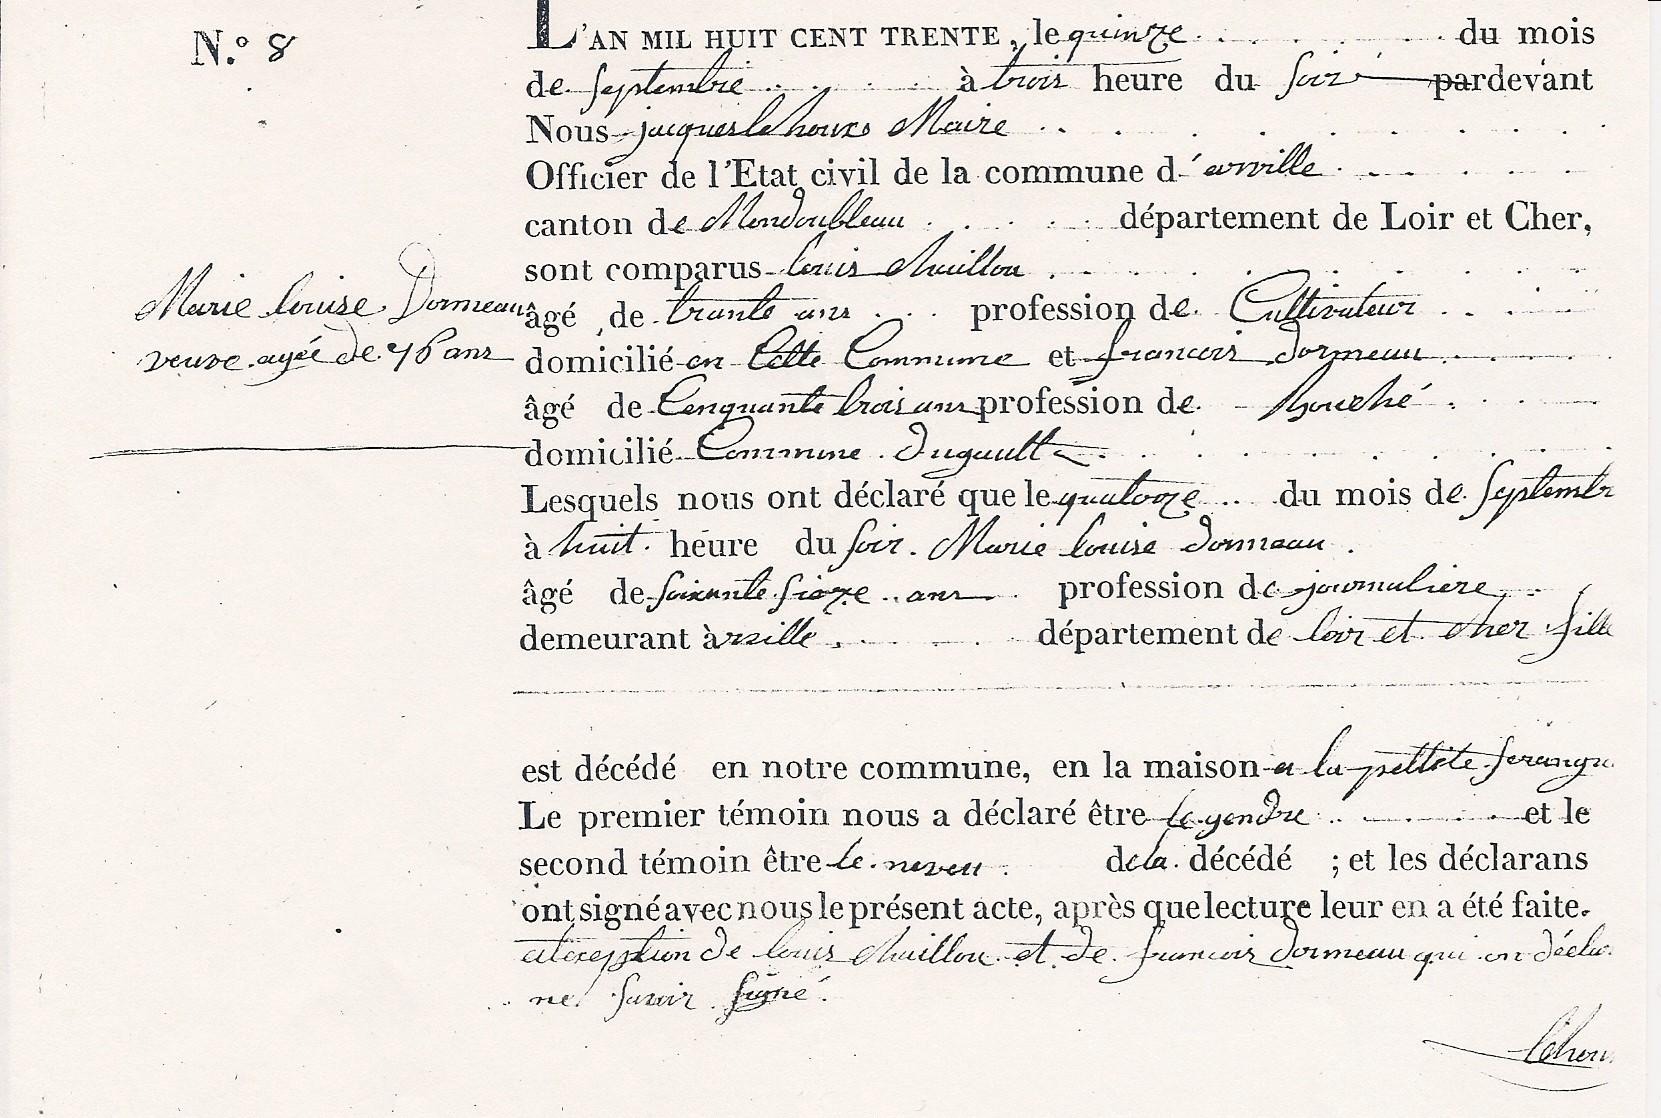 N.o 8
L'AN MIL HUIT CENT TRENTE, le quinze du mois
de Septembre à trois heure du Soir pardevant
Nous jacques lehoux Maire
Officier de l'Etat civil de la commune d'arville
canton de Mondoubleau département de Loir et Cher,
sont comparus louis Chaillou
Marie louise Dormeau
âgé de trante ans profession de Cultivateur
veuve agée de 76 ans
domicilié en Cette Commune et francois dormeau
âgé de Cenquante trois ans profession de
domicilié Commune dugault
Lesquels nous ont déclaré que le quatorze du mois de Septembr
à huit heure du Soir Marie louise dormeau
âgé de Soixante Sieze ans profession de journaliere
demeurant à département de loir et cher fille
est décédé en notre commune, en la maison a la pettite
Le premier témoin nous a déclaré être le gendre et le
second témoin être le neveu dela décédé ; et les déclarans
ont signé avec nous le présent acte, après que lecture leur en a été faite.
de louis Chaillou et de francois dormeau qui on déclar
ne Savoir Signé.
Lehou